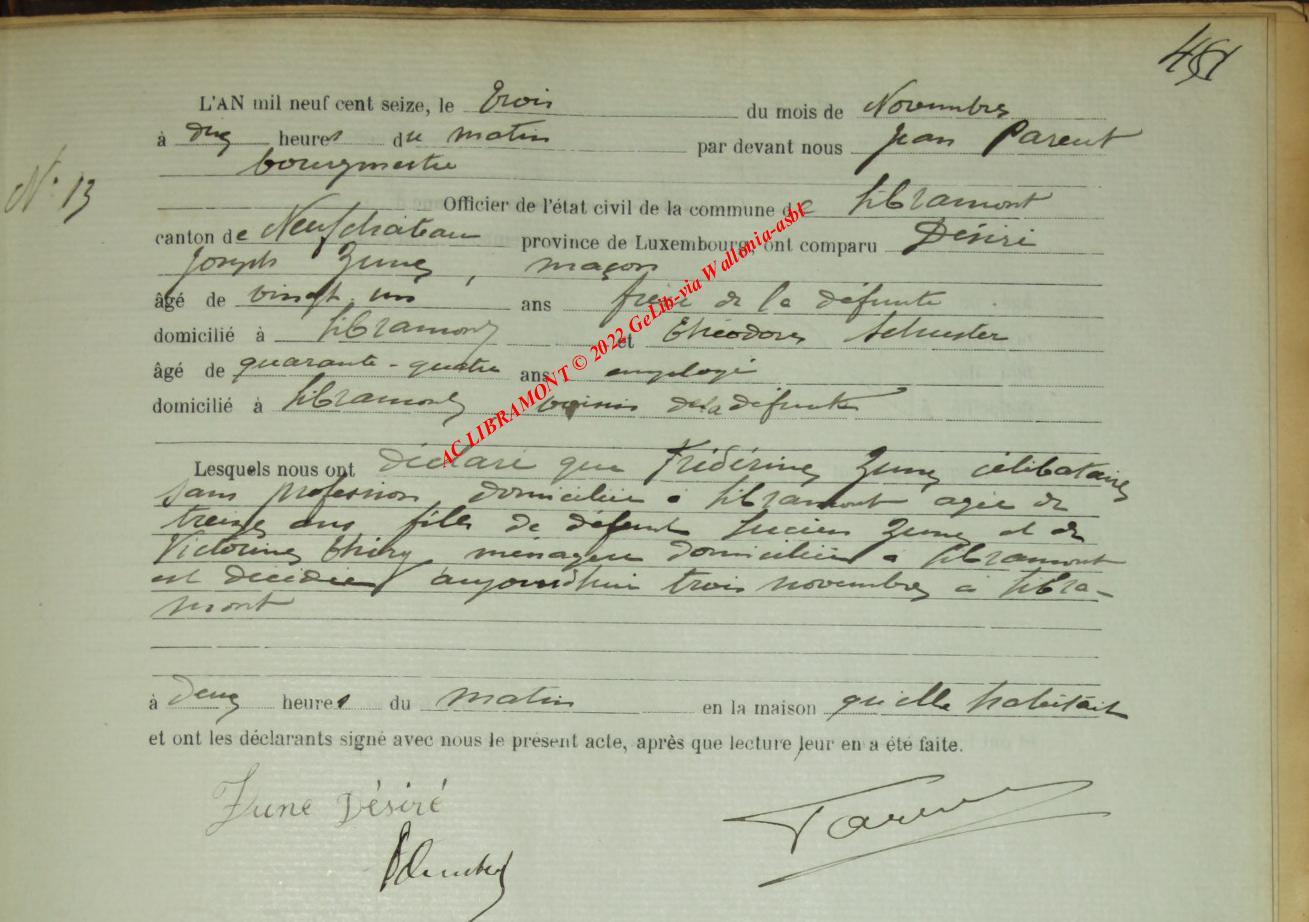 451
L'AN mil neuf cent seize, le trois du mois de Novembre
à dix heures du matin par devant nous Jean Parent
bourgmestre
N° 13
Officier de l'état civil de la commune de Libramont
canton de Neufchateau province de Luxembourg, ont comparu Désiré
Joseph Zune, maçon
âgé de vingt un ans frère de la défunte
domicilié à Libramont et Théodore Schuster
âgé de quarante-quatre ans employé
domicilié à Libramont voisin de la défunte
AC LIBRAMONT © 2022 GeLib-via Wallonia-asbl
Lesquels nous ont déclaré que Zune célibataire
sans profession domiciliée à Libramont agée de
treize ans fille de défunt Lucien Zune et de
Victorine Thiry ménagère domiciliée à Libramont
est décédée aujourd'hui trois novembre à Libra-
mont
à deux heures du matin en la maison qu'elle habitait
et ont les déclarants signé avec nous le présent acte, après que lecture leur en a été faite.
Zune Désiré
Parent